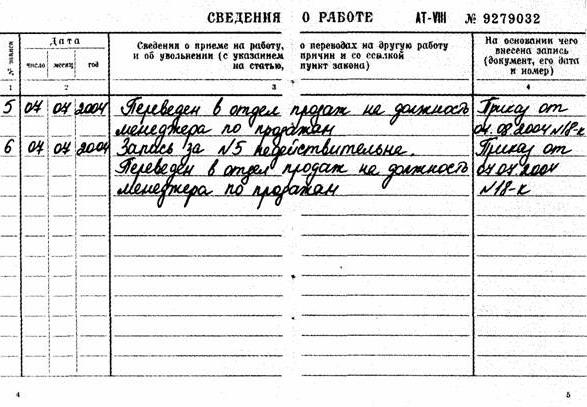 СВЕДЕНИЯ О РАБОТЕ АТ-VIII № 9279032
№ записи
Дата
число месяц год
Сведения о приеме на работу, о переводах на другую работу
и об увольнении (с указанием причин и со ссылкой
на статью, пункт закона)
На основании чего
внесена запись
(документ, его дата
и номер)
1 2 3 4
5 04 04 2004 Переведен в отдел продаж на должность Приказ от
менеджера по продажам 04.08.2004 №18-к
6 04 04 2004 Запись за №5 недействительна. Приказ от
Переведен в отдел продаж на должность 04.04.2004
менеджера по продажам №18-к
4 5